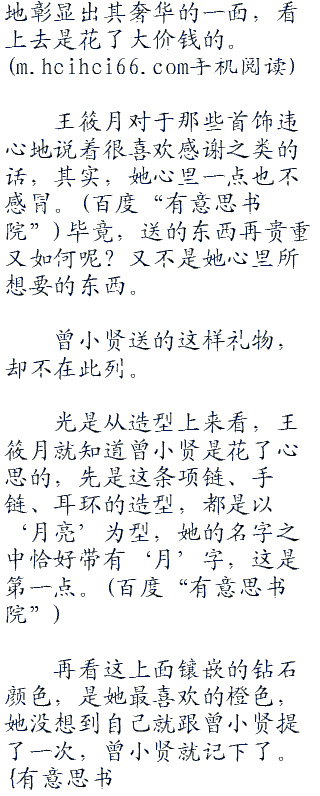 地彰显出其奢华的一面，看
上去是花了大价钱的。
(m.hcihci66.com手机阅读)
王筱月对于那些首饰违
心地说着很喜欢感谢之类的
话，其实，她心里一点也不
感冒。(百度“有意思书
院”)毕竟，送的东西再贵重
又如何呢？又不是她心里所
想要的东西。
曾小贤送的这样礼物，
却不在此列。
光是从造型上来看，王
筱月就知道曾小贤是花了心
思的，先是这条项链、手
链、耳环的造型，都是以
‘月亮’为型，她的名字之
中恰好带有‘月’字，这是
第一点。(百度“有意思书
院”)
再看这上面镶嵌的钻石
颜色，是她最喜欢的橙色，
她没想到自己就跟曾小贤提
了一次，曾小贤就记下了。
{有意思书